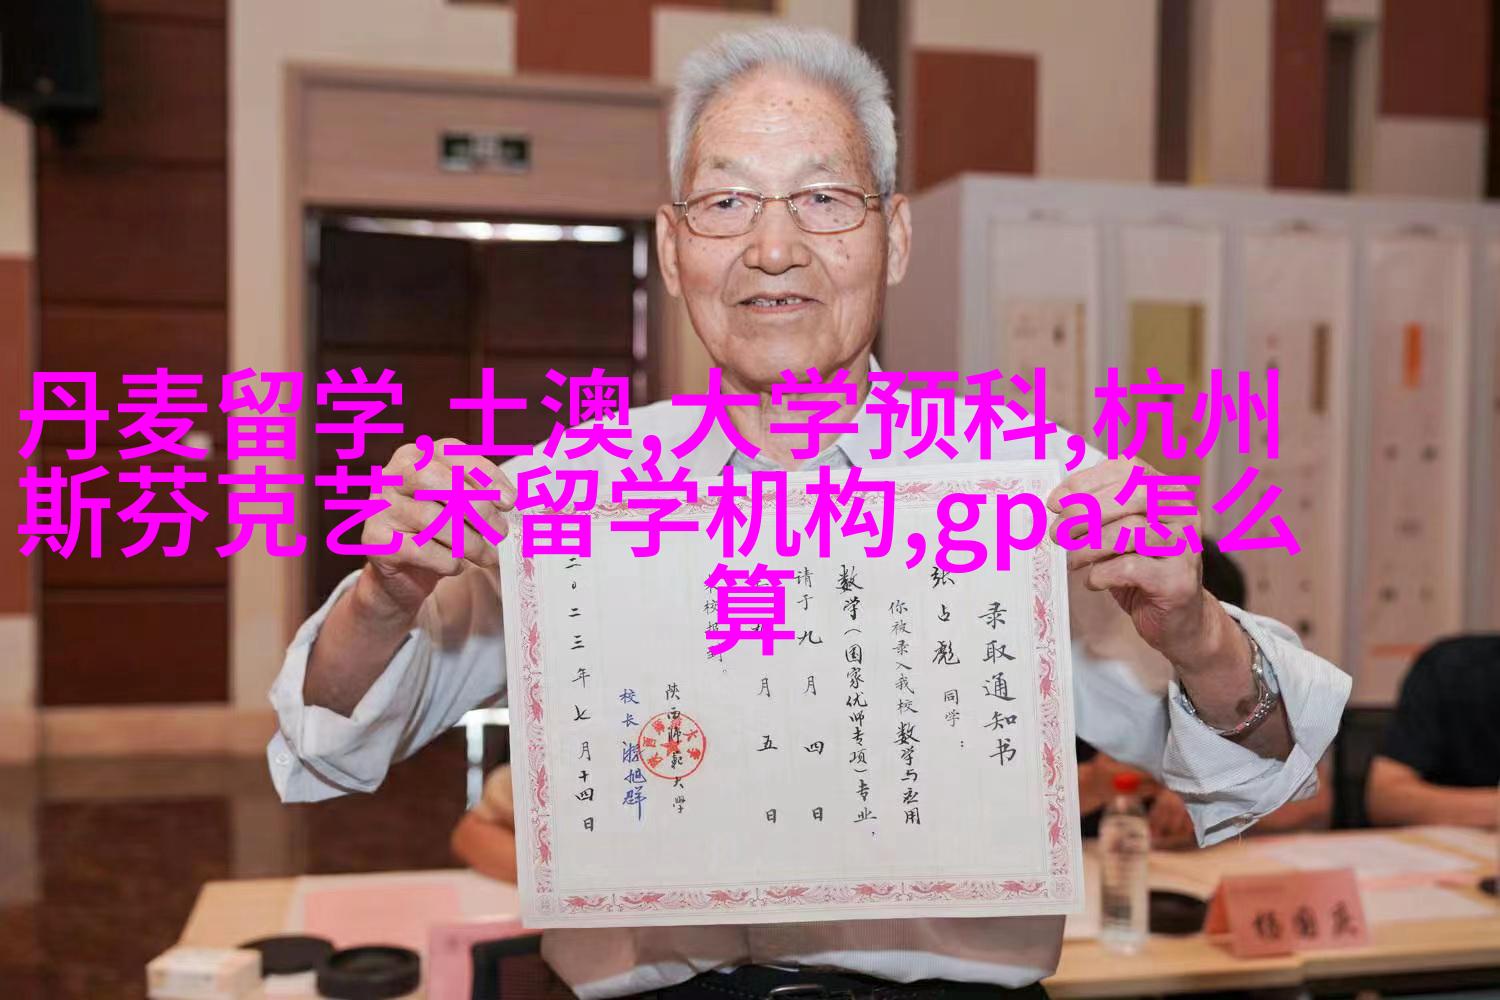 丹麦留学,土澳,大学预科,杭州
斯芬克艺术留学机构,gpa怎么
算
录取通知书
张占彪同学：
你被录入我校数学与应用
数学（国家优师专项）专业，
请于九月四日
月五日
陕西师范大学
校长
二〇二三年七月十四日
杨国庆